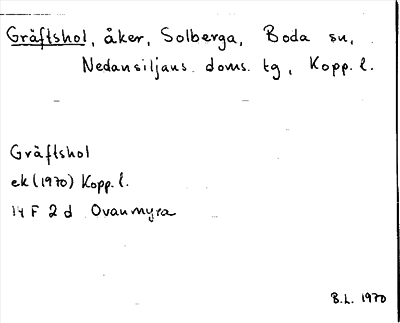 Gräftshol, åker, Solberga, Boda sn,
Nedansiljans doms. tg, Kopp. l.
Gräftshol
ek (1970) Kopp. l.
14 F 2 d Ovanmyra
B.L. 1970